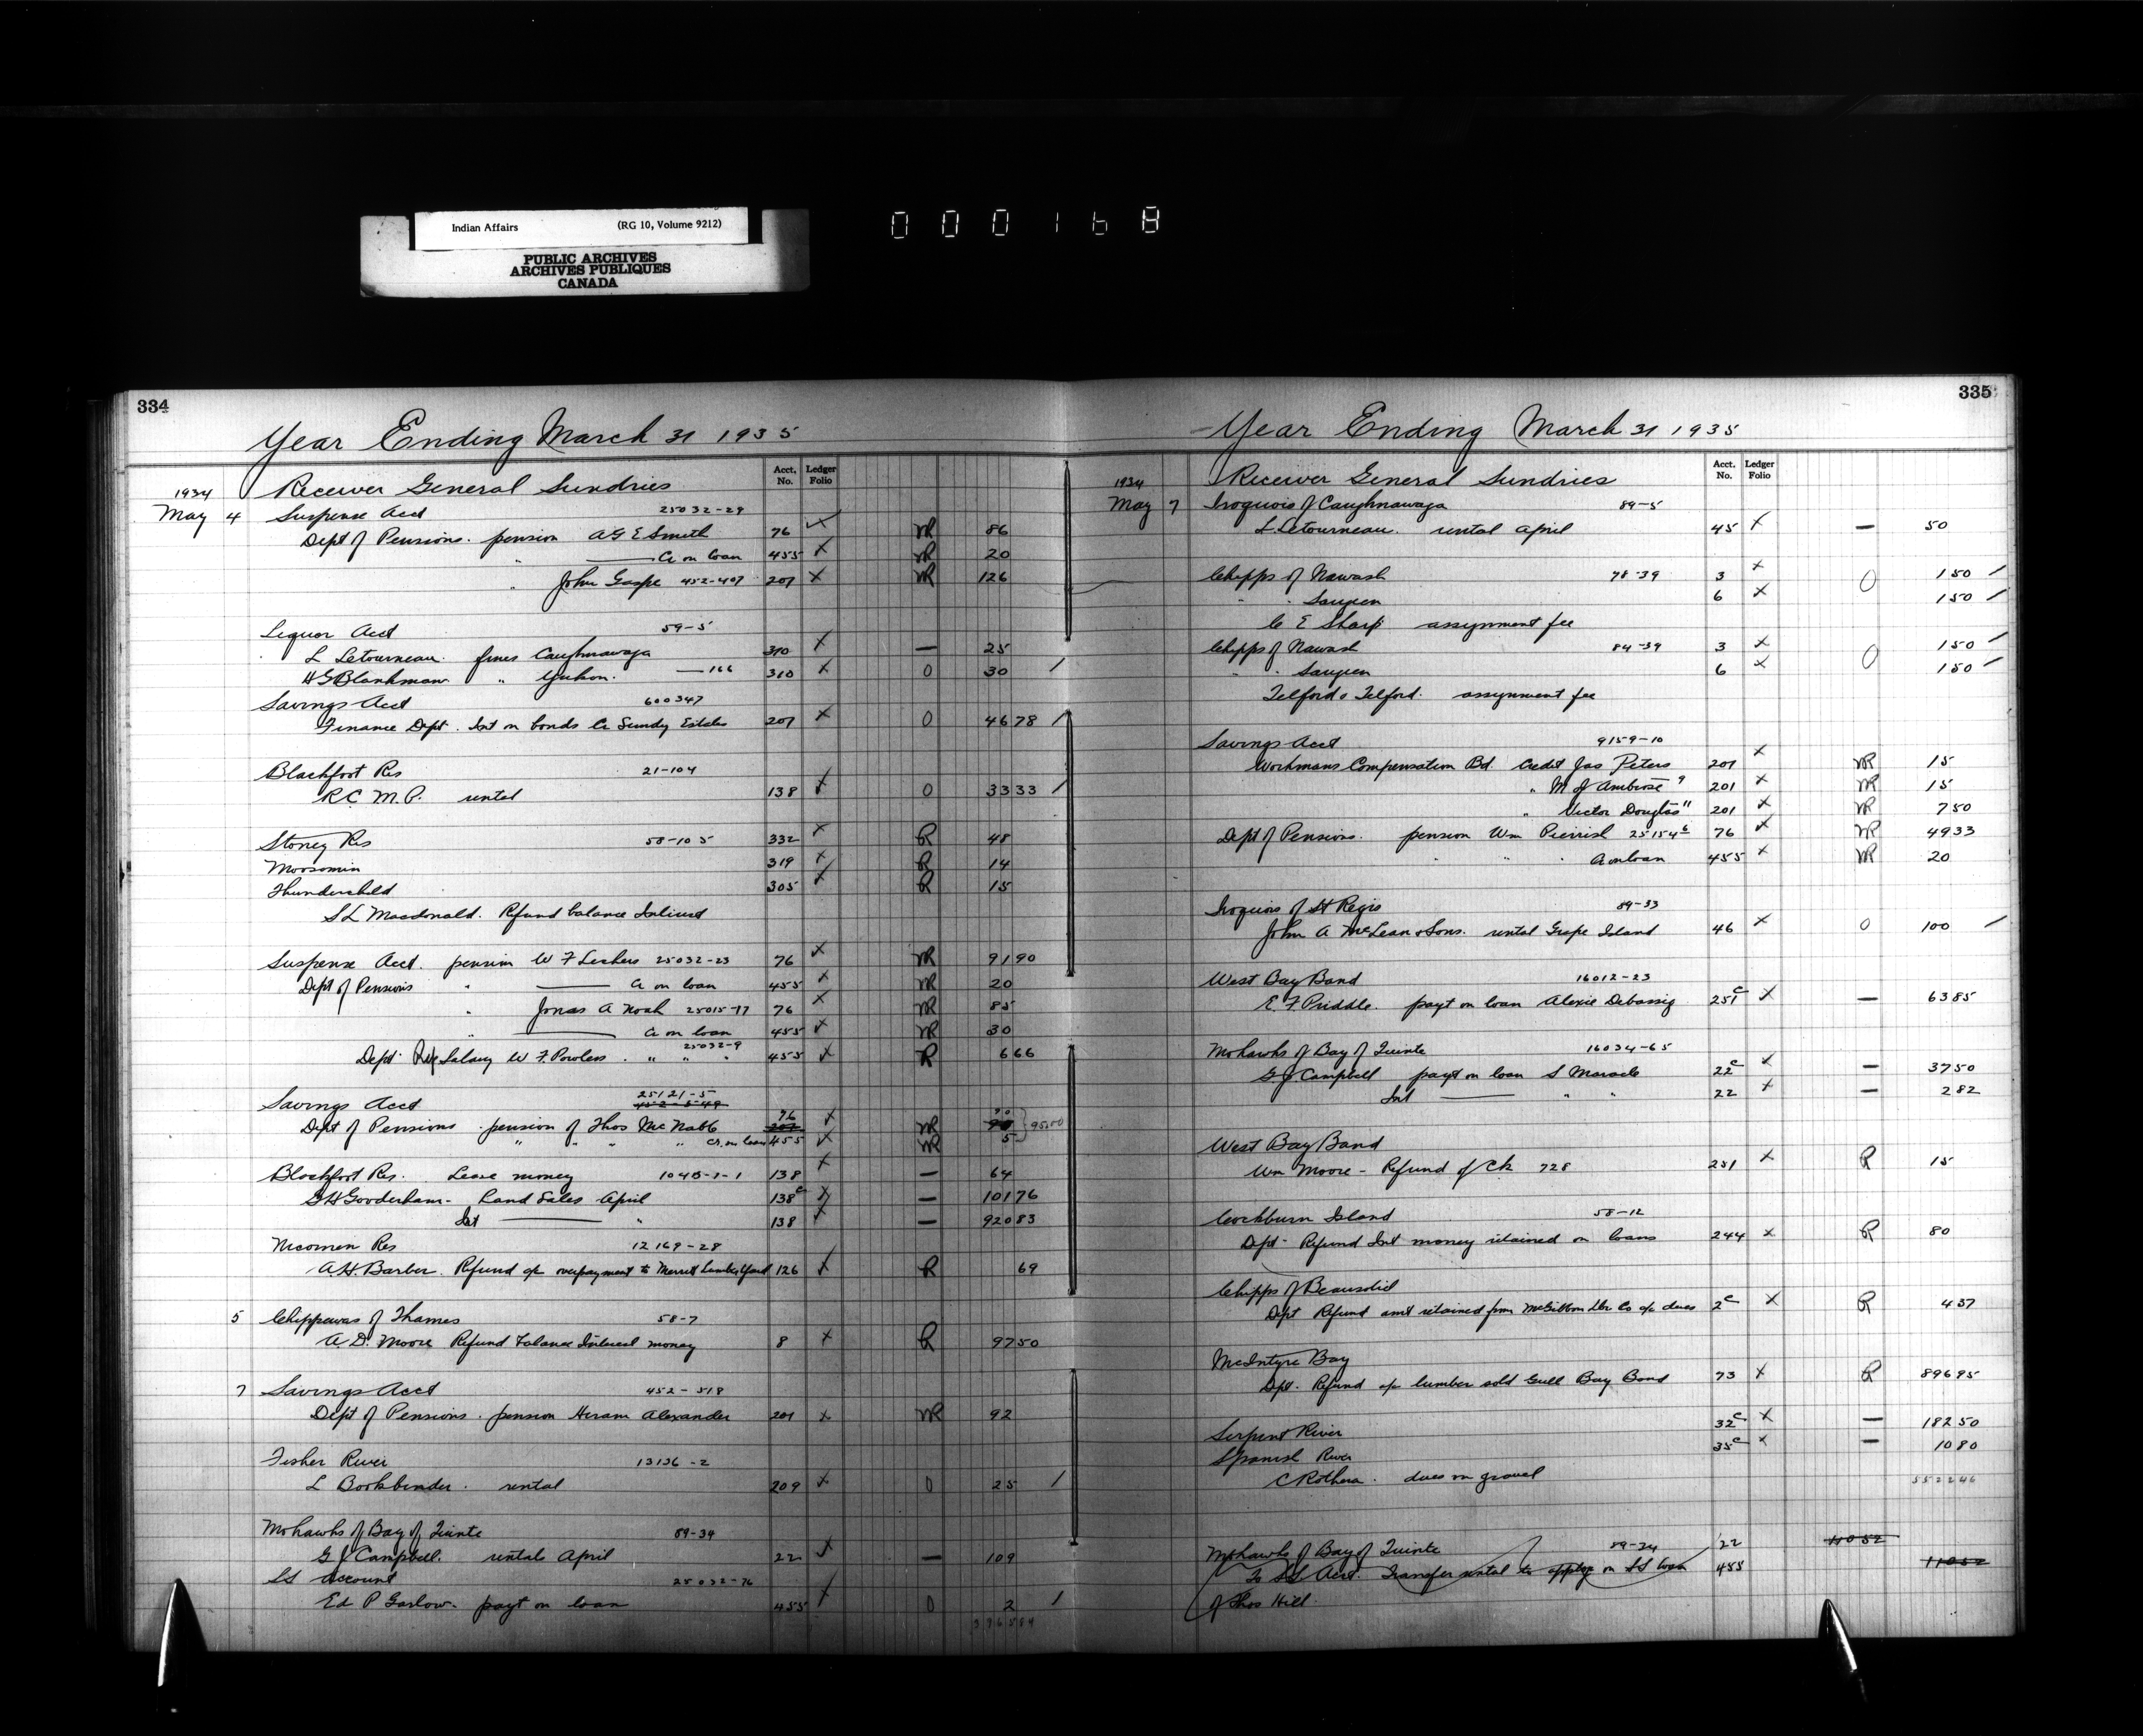 Indian Affairs (RG 10, Volume 9212)
PUBLIC ARCHIVES
ARCHIVES PUBLIQUES
CANADA
000168
334
Year Ending March 31 1935
Acct. No. Ledger Folio
1934 Receiver General Sundries
May 4 Suspense Acct 25032-29
Dept of Pensions. pension A G E Smith 76 NR 86
" Cr on loan 455 NR 20
" John Gaspe 452-407 201 NR 126
Liquor Acct 59-5
L Letourneau. fines Caughnawaga 310 — 25
H G Blankman " Yukon. —166 310 0 30 /
Savings Acct 600347
Finance Dept. Int on bonds Cr Sundry Estates 201 0 46 78 /
Blackfoot Res 21-104
R.C.M.P. rental 138 0 33 33 /
Stoney Res 58-105 332 R 48
Moosomin 319 R 14
Thunderchild 305 R 15
S L Macdonald. Refund balance Interest
Suspense Acct. pension W F Lickers 25032-23 76 NR 91 90
Dept of Pensions " Cr on loan 455 NR 20
" Jonas A Noah 25015-17 76 NR 85
" Cr on loan 455 NR 30
25032-9
Dept Salary W F Powless . " " " 455 R 6 66
25121-5
Savings Acct 452-549
76 90
Dept of Pensions pension of Thos McNabb 201 NR 95.00
" " " " cr. on loan 455 NR 5
Blackfoot Res. Lease money 1045-1-1 138 — 64
G H Gooderham - Land Sales April 138c — 101 76
Int — " 138 — 920 83
Nicomen Res 12169-28
A.H. Barber. Refund a/c overpayment to Merritt Lumber Yard 126 R 69
5 Chippewas of Thames 58-7
A. D. Moore Refund balance Interest money 8 R 97 50
7 Savings Acct 452-518
Dept of Pensions. pension Hiram Alexander 201 NR 92
Fisher River 13136-2
L Bookbinder. rental 209 0 25 /
Mohawks of Bay of Quinte 89-34
G J Campbell. rentals April 22 — 109
SS Account 25032-76
Ed P Garlow. payt on loan 455 0 2 /
335
Year Ending March 31 1935
Acct. No. Ledger Folio
1934 Receiver General Sundries
May 7 Iroquois of Caughnawaga 89-5
L. Letourneau. rental April 45 — 50
Chipps of Nawash 78-39 3 0 1 50 /
" " Saugeen 6 1 50 /
C E Sharp assignment fee
Chipps of Nawash 84-39 3 0 1 50 /
" Saugeen 6 1 50 /
Telford & Telford. assignment fee
Savings Acct 9159-10
Workmans Compensation Bd. Credit Jas Peters 201 NR 15
" M J Ambrose 9 201 NR 15
" Victor Douglas 11 201 NR 7 50
Dept of Pensions. pension Wm Pierrish 25154-6 76 NR 49 33
" " " Cr on loan 455 NR 20
Iroquois of St Regis 89-33
John A McLean & Sons. rental Grape Island 46 0 100 /
West Bay Band 16012-23
E. F. Priddle. payt on loan Alexie Debassig 251c — 63 85
Mohawks of Bay of Quinte 16034-65
G J Campbell payt on loan S Maracle 22c — 37 50
Int — " " 22 — 2 82
West Bay Band
Wm Moore - Refund of Ck 728 251 R 15
Cockburn Island 58-12
Dept - Refund Int money retained on loans 244 R 80
Chipps of Beausoleil
Dept Refund amt retained from McGibbon Lbr Co a/c dues 2c R 4 37
McIntyre Bay
Dept. Refund a/c lumber sold Gull Bay Band 73 R 896 95
Serpent River 32c — 182 50
Spanish River 35c — 10 80
C Rothera. dues on gravel
5522 46
Mohawks of Bay of Quinte 89-34 22 110 52
To SS Acct. Transfer rental to apply on SS loan 455 110 52
of Thos Hill.